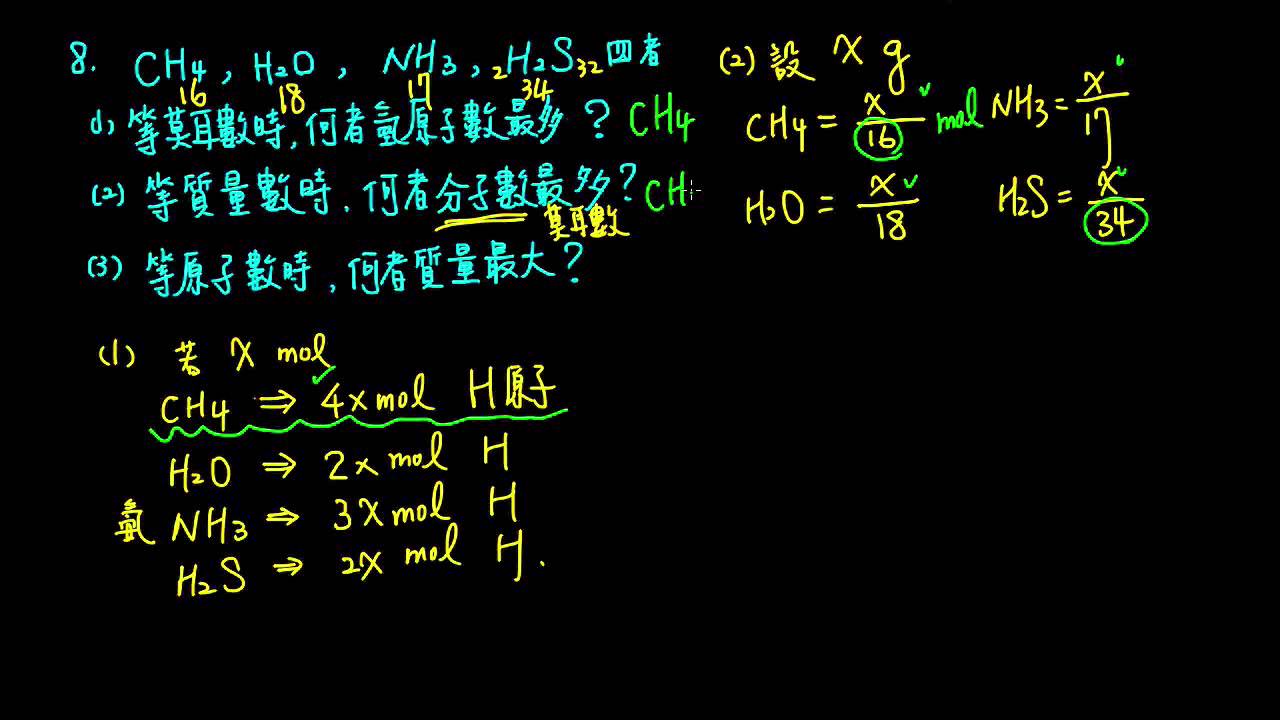 8. CH4, H2O, NH3, H2S 四者
16 18 17 2 32 34
(1) 等莫耳數時,何者氫原子數最多? CH4
(2) 等質量數時,何者分子數最多? CH
莫耳數
(3) 等原子數時,何者質量最大?
(1) 若 X mol
CH4 ⇒ 4x mol H原子
H2O ⇒ 2x mol H
氨 NH3 ⇒ 3X mol H
H2S ⇒ 2X mol H.
(2) 設 X g
CH4 = x/16 mol NH3 = x/17
H2O = x/18 H2S = x/34